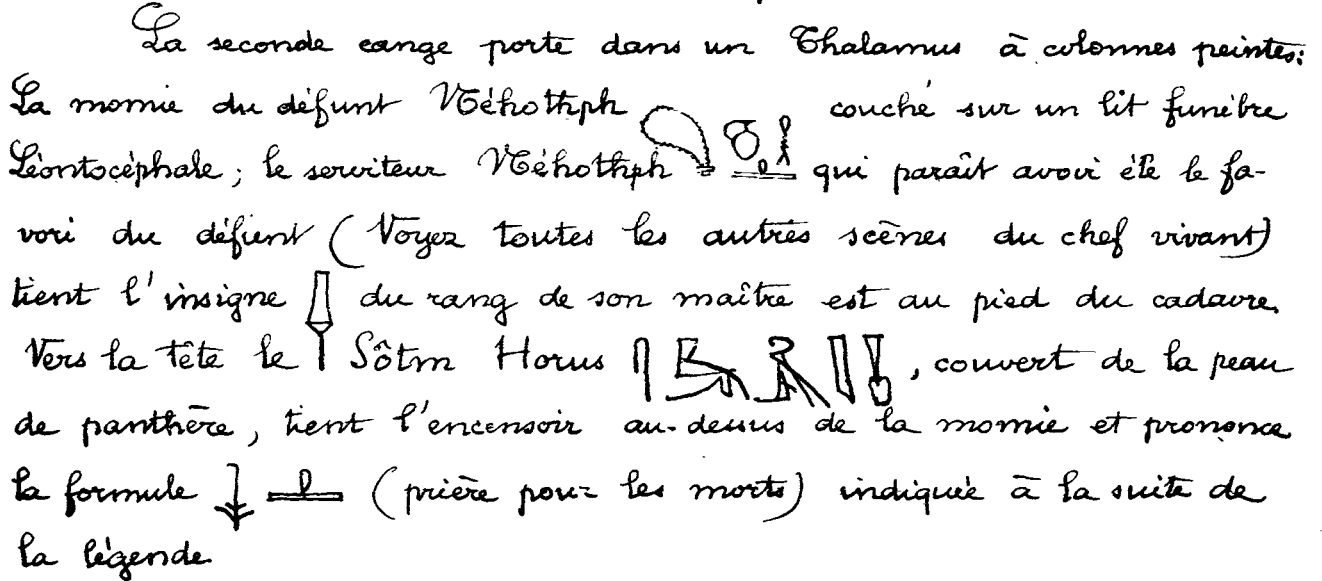 La seconde cange porte dans un Thalamus à colonnes peintes:
La momie du défunt Néhothph couché sur un lit funèbre
Léontocéphale; le serviteur Néhothph qui paraît avoir été le fa-
vori du défunt (Voyez toutes les autres scènes du chef vivant)
tient l'insigne du rang de son maître est au pied du cadavre.
Vers la tête le Sôtm Horus , couvert de la peau
de panthère, tient l'encensoir au-dessus de la momie et prononce
la formule (prière pour les morts) indiquée à la suite de
la légende.